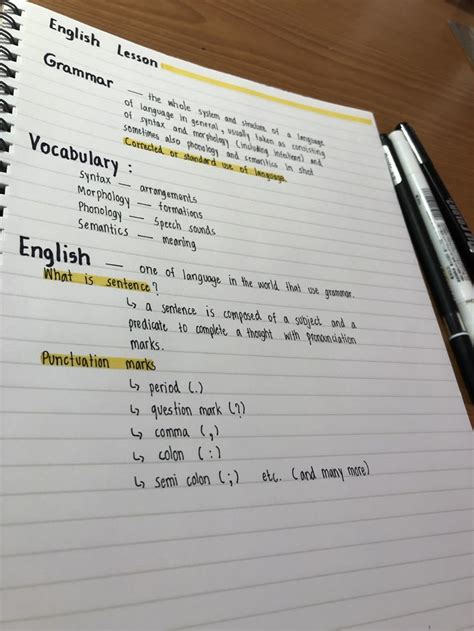 English Lesson
Grammar — the whole system and structure of a language
of language in general, usually taken as consisting
of syntax and morphology (including inflections) and
sometimes also phonology and semantics in shot
Corrected or standard use of language.
Vocabulary :
Syntax — arrangements
Morphology — formations
Phonology — Speech sounds
Semantics — meaning
English — one of language in the world that use grammar.
What is sentence?
↳ a sentence is composed of a subject and a
predicate to complete a thought with pronounciation
marks.
Punctuation marks
↳ period (.)
↳ question mark (?)
↳ comma (,)
↳ colon (:)
↳ semi colon (;) etc. (and many more)